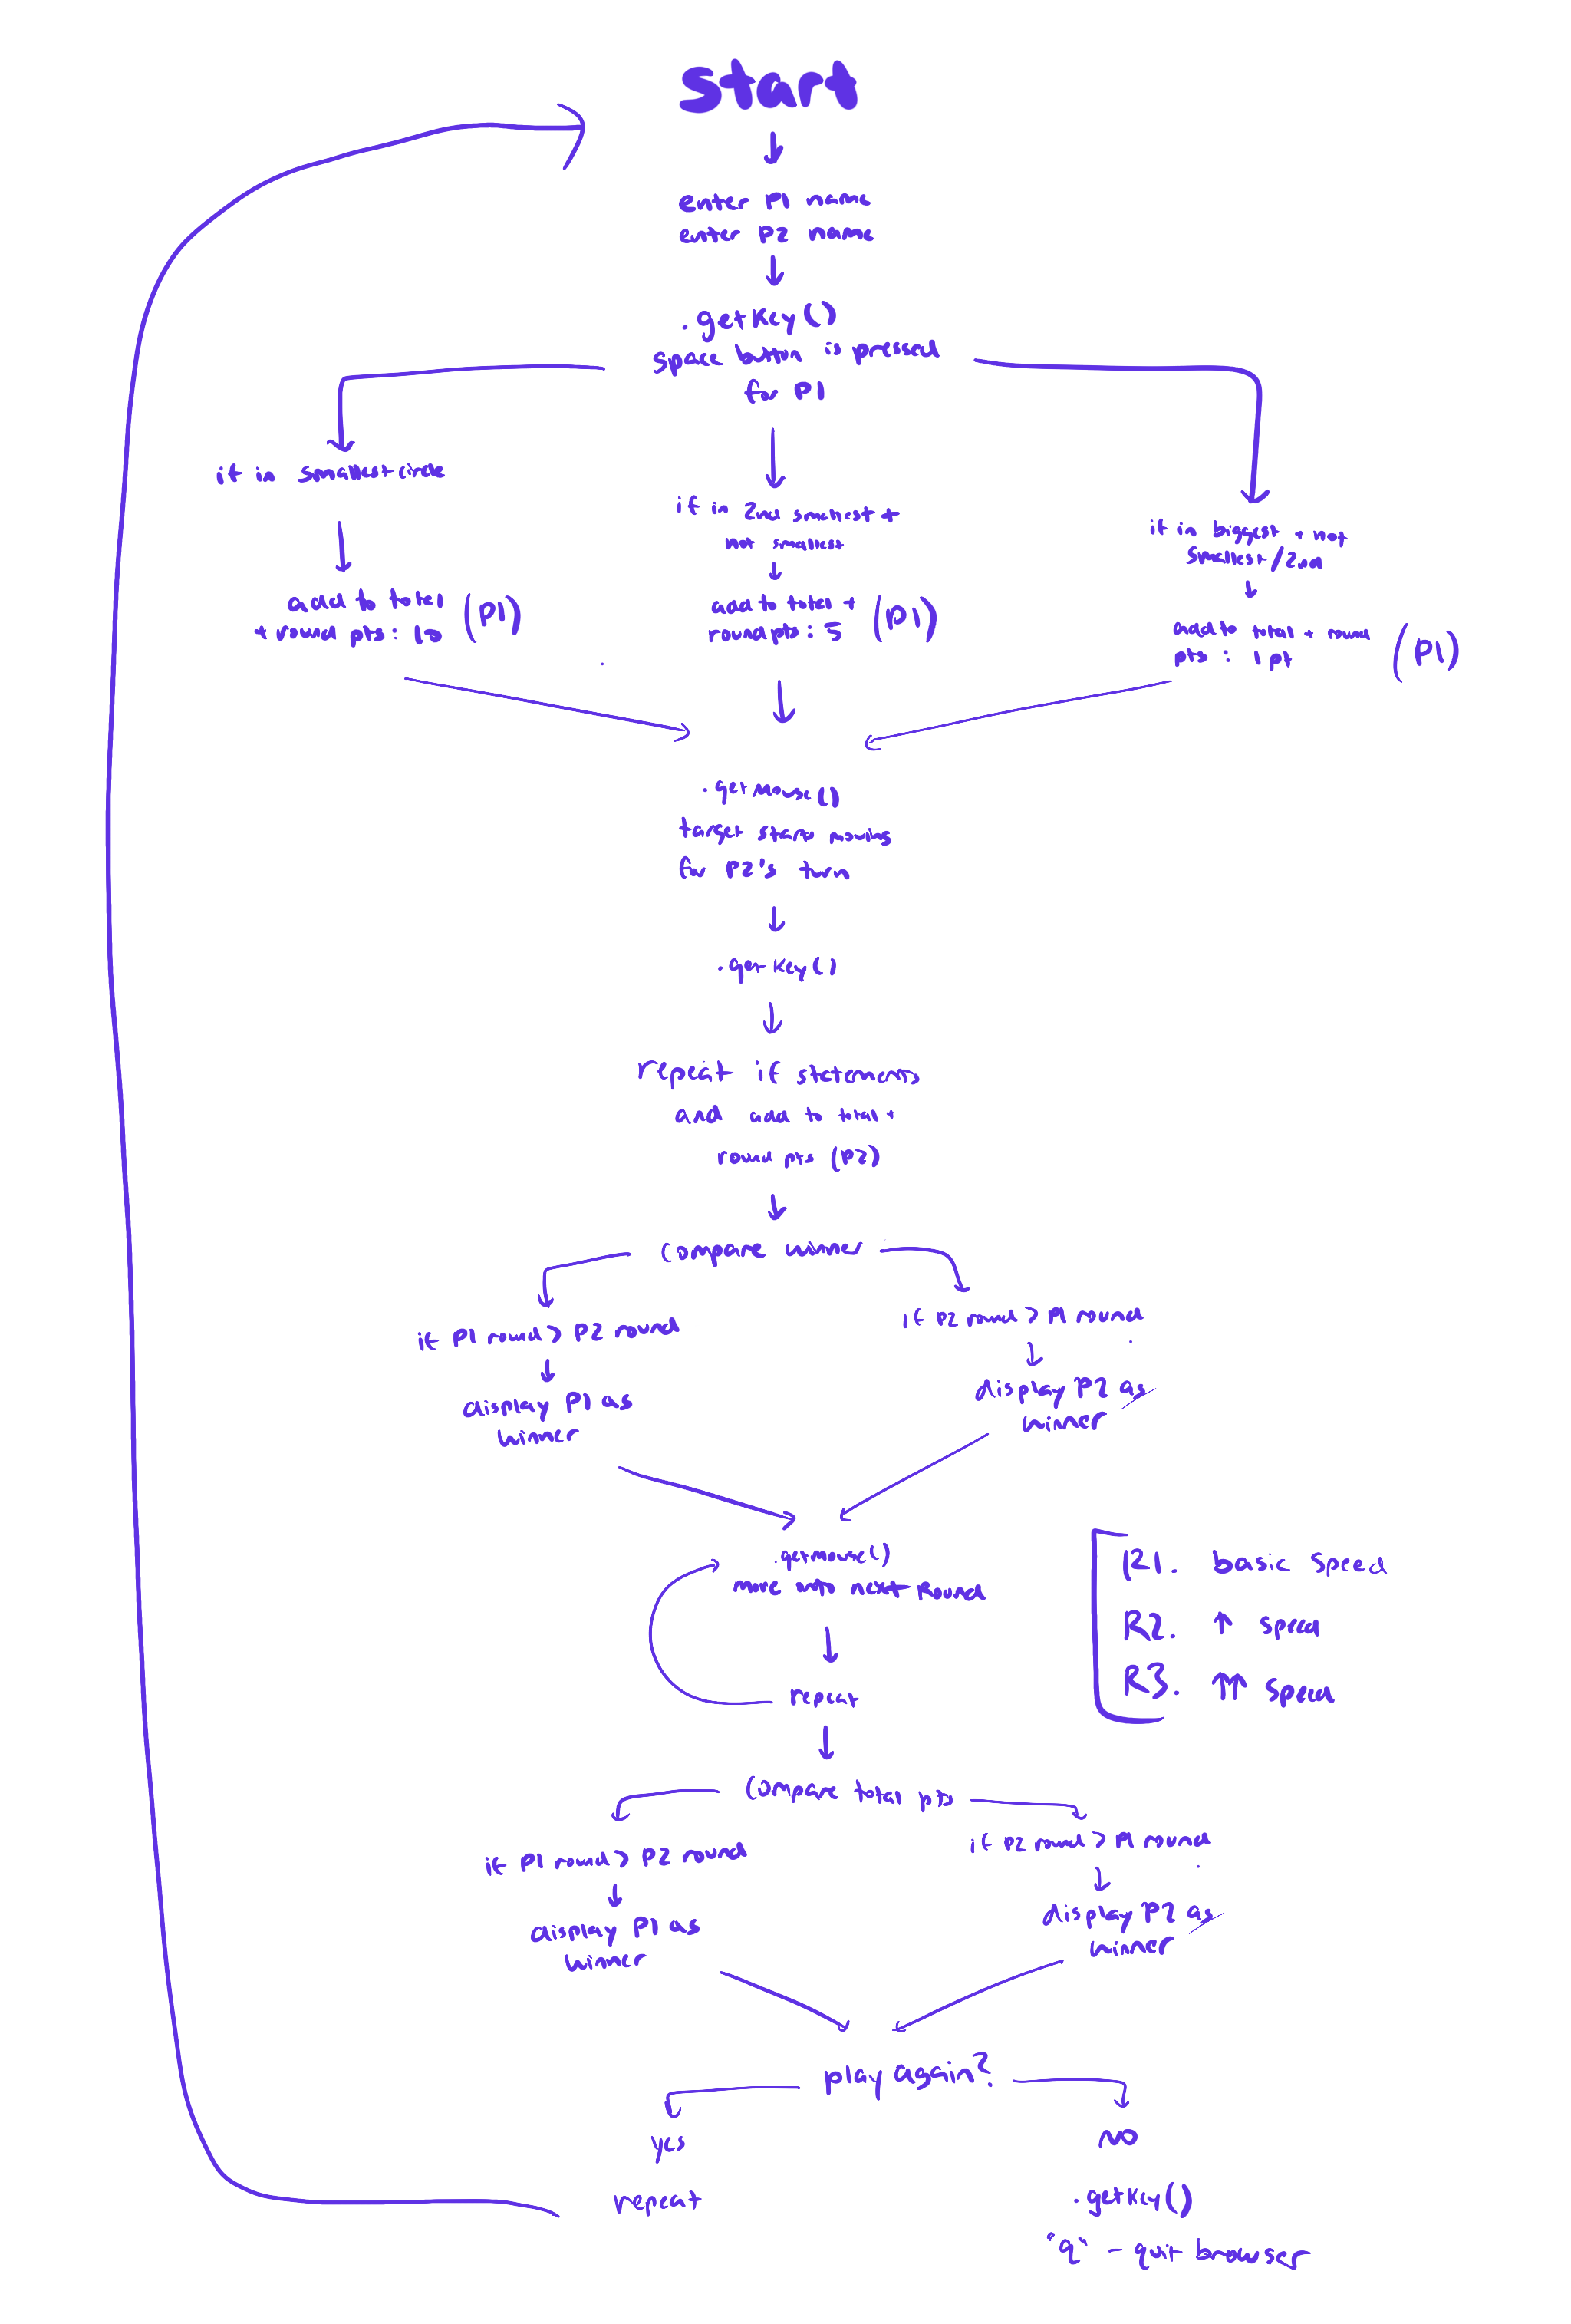 Start
enter P1 name
enter P2 name
.getKey()
space button is pressed
for P1
if in smallest circle
add to total
+ round pts: 10 (P1)
if in 2nd smallest +
not smallest
add to total +
round pts: 5 (P1)
if in biggest + not
smallest/2nd
add to total + round
pts: 1 pt (P1)
.getMouse()
target starts moving
for P2's turn
.getKey()
repeat if statements
and add to total +
round pts (P2)
compare winner
if P1 round > P2 round
display P1 as
winner
if P2 round > P1 round
display P2 as
winner
.getmouse()
move onto next Round
repeat
R1. basic speed
R2. ↑ speed
R3. ↑↑ speed
compare total pts
if P1 round > P2 round
display P1 as
winner
if P2 round > P1 round
display P2 as
winner
play again?
yes
repeat
NO
.getKey()
"q" - quit browser